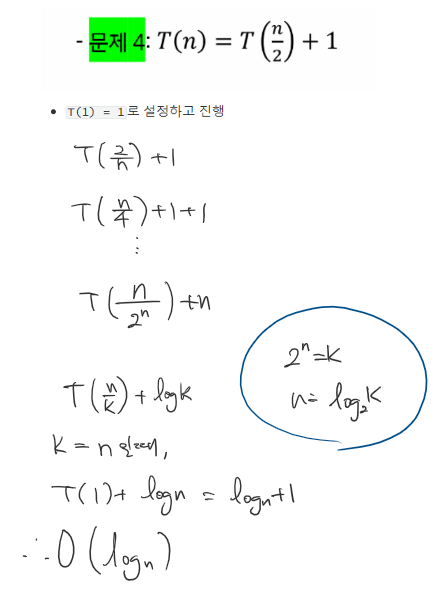 - 문제 4: T(n) = T(n/2) + 1
• T(1) = 1로 설정하고 진행
T(2/n) + 1
T(n/4) + 1 + 1
⋮
T(n/2ⁿ) + n
2ⁿ = k
n = log₂k
T(n/k) + logk
k = n 일 때,
T(1) + logn = logn + 1
∴ O(logn)